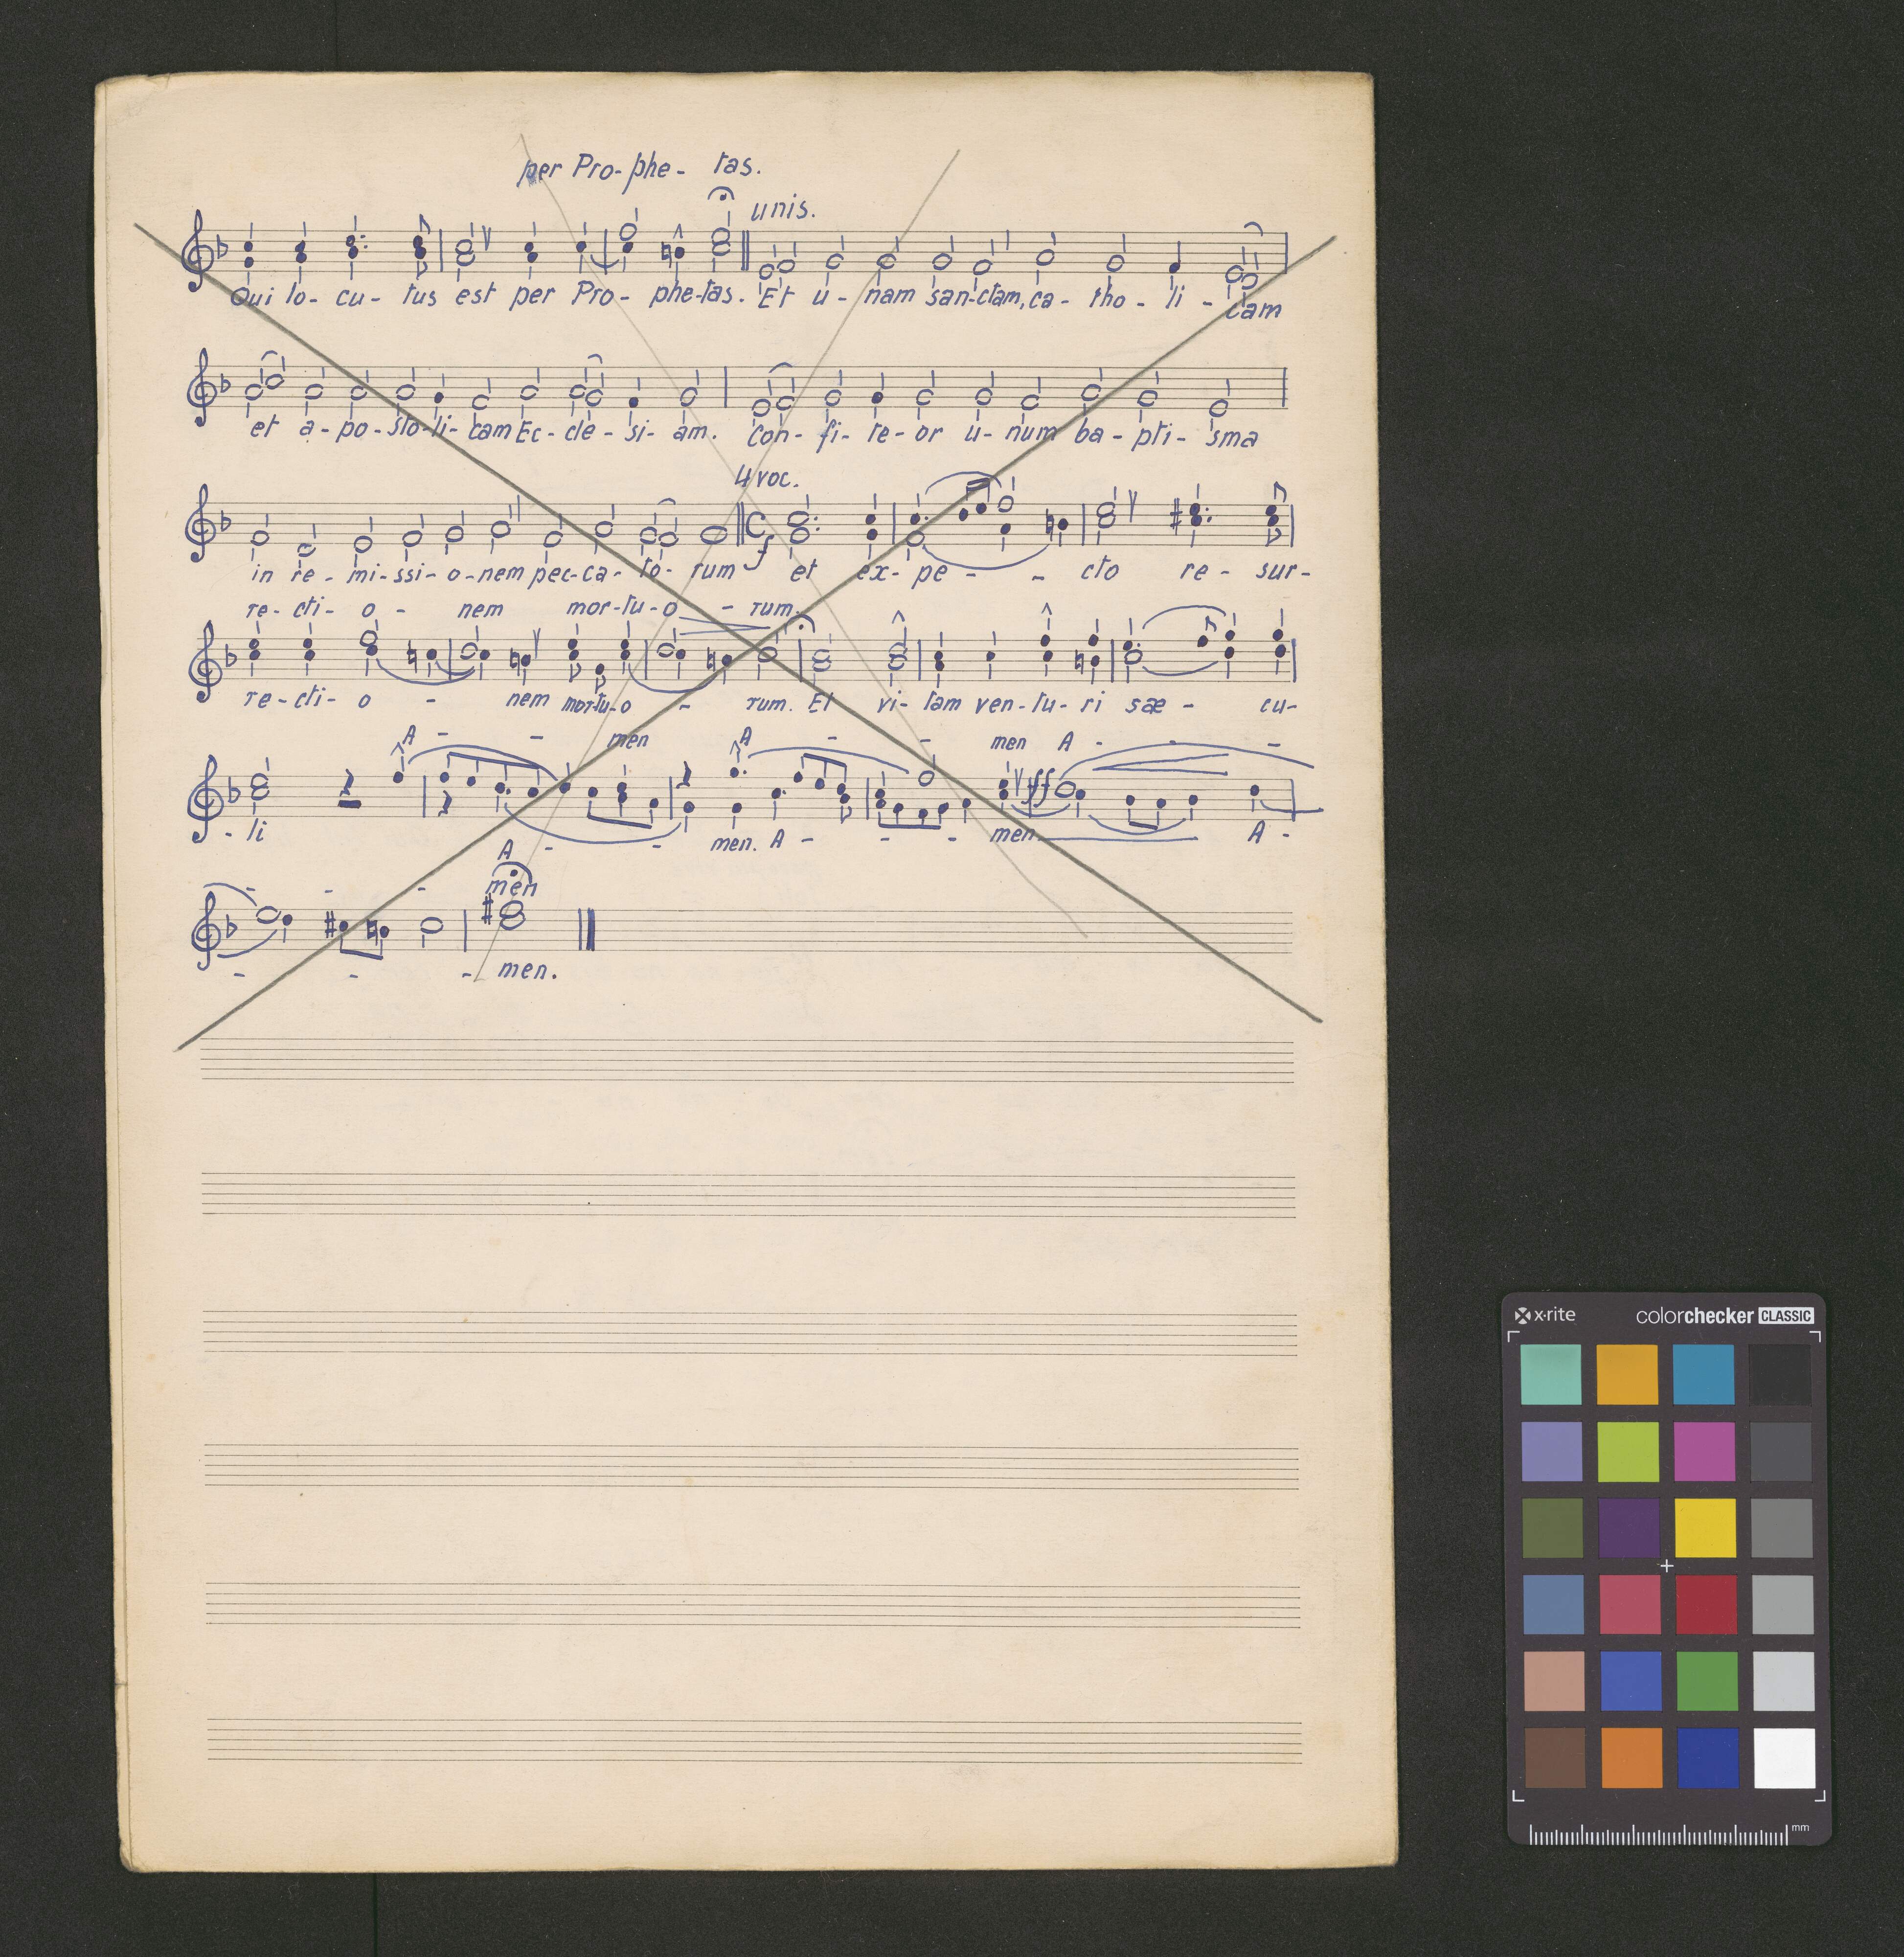 per Pro- phe- tas.
unis.
Qui lo- cu- tus est per Pro- phe-tas. Et u- nam san-ctam, ca- tho- li- cam
et a- po- sto- li- cam Ec- cle- si- am. Con- fi- te- or u- num ba- pti- sma
4 voc.
in re- mi- ssi- o- nem pec- ca- to- rum f et ex- pe - - cto re- sur-
re- cti- o - nem mor-tu-o - rum.
re- cti- o - nem mor-tu-o - rum. Et vi- tam ven- tu- ri sæ - cu-
A - - men A - - men A - - -
ff
- li A - - men. A - - - men A -
- - - men
- - - men.
x·rite colorchecker CLASSIC
mm